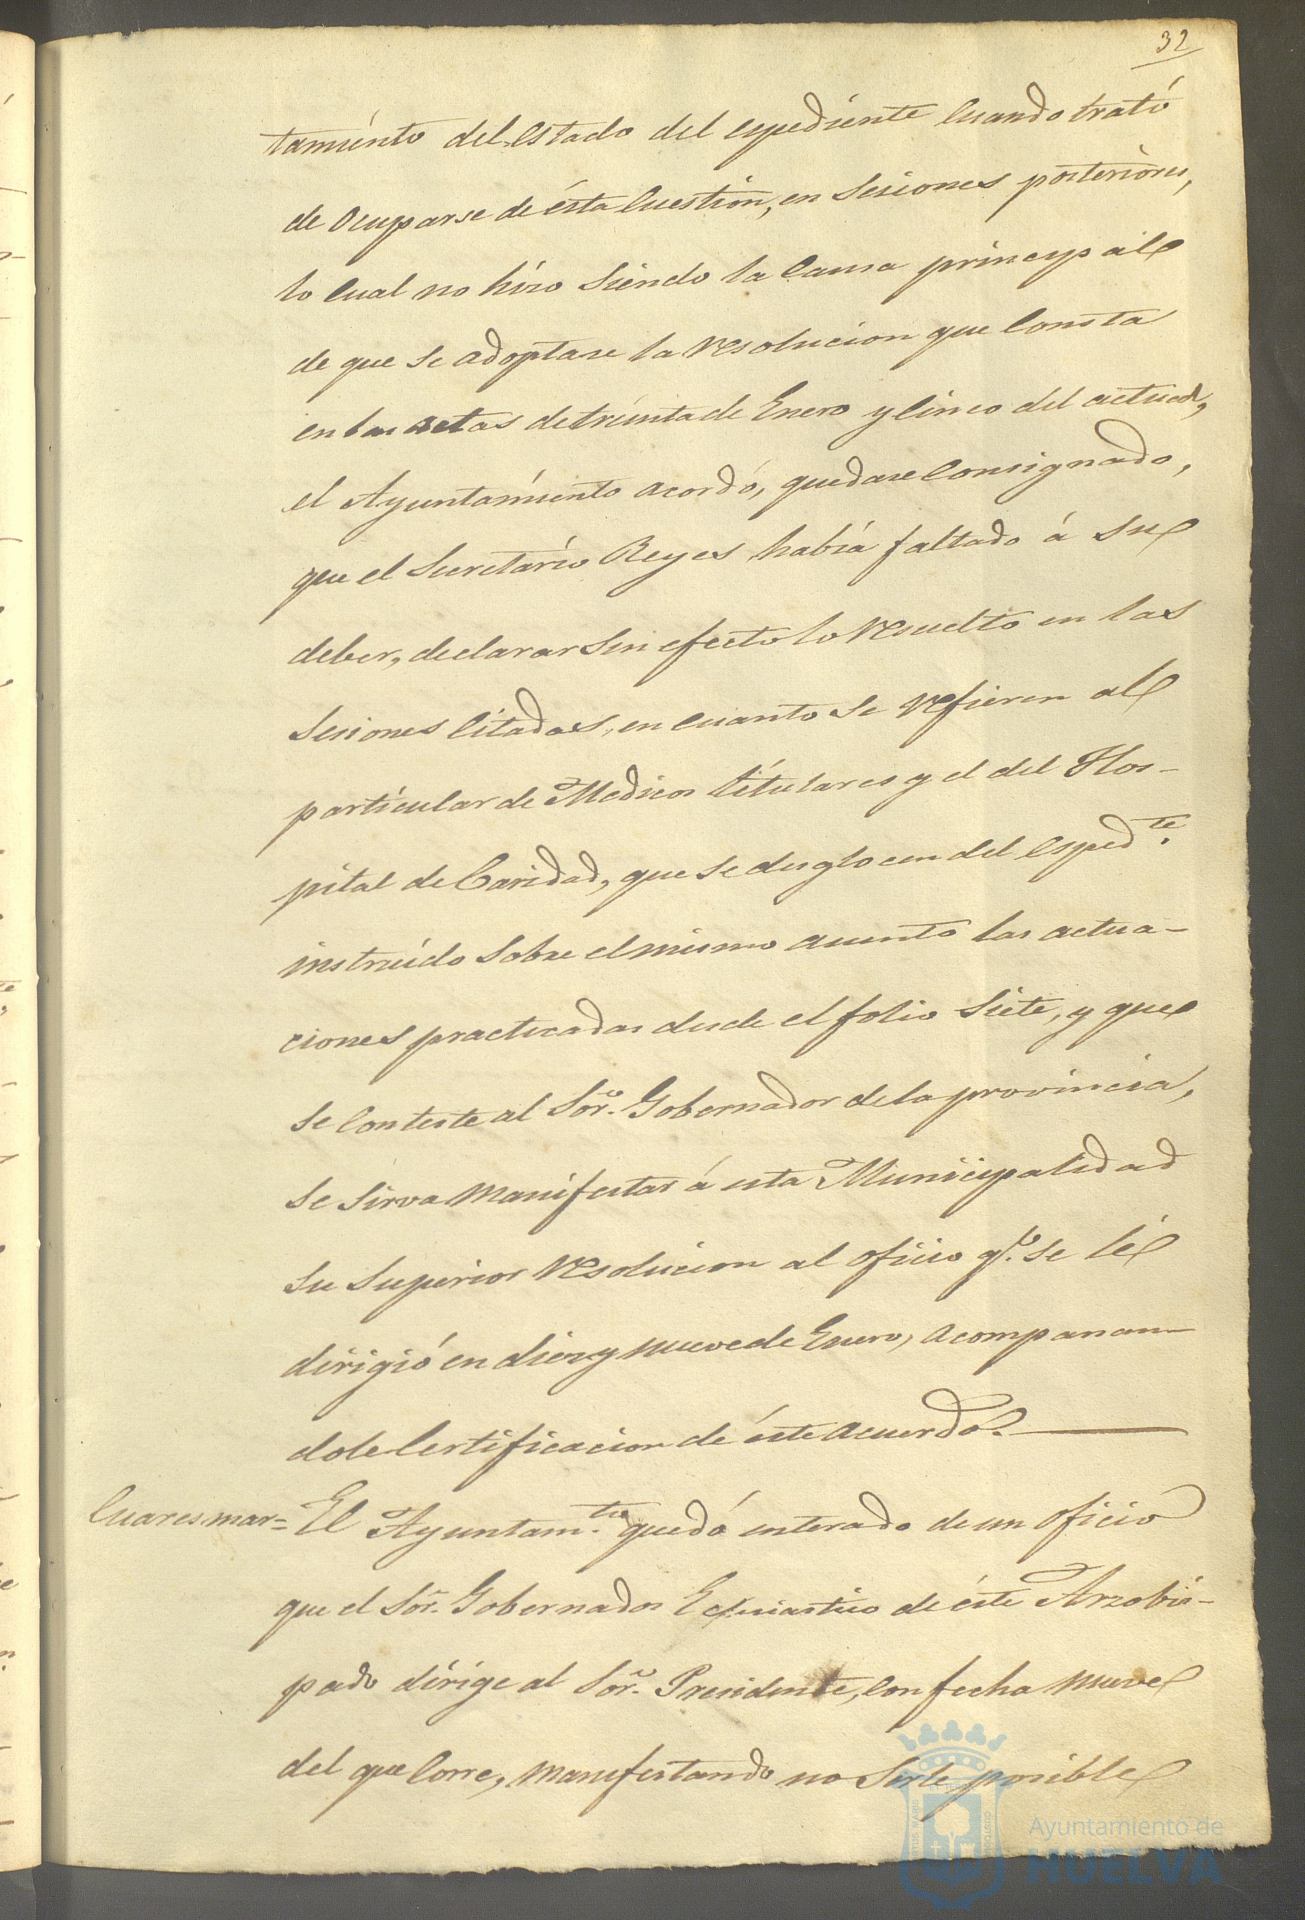 32
tamiénto del Estado del espediénte cuando trató
de ocuparse de ésta cuestion, en sesiones posteriores,
lo cual no hizo siendo la causa principal
de que se adoptase la resolucion que consta
en las actas de treinta de Enero y cinco del actual,
el Ayuntamiento acordó, quedase consignado,
que el Secretario Reyes había faltado á su
deber, declarar sin efecto lo resuelto en las
sesiones citadas, en cuanto se refieren al
particular de Medicos titulares y el del Hos-
pital de Caridad, que se desglocen del esped.te
instruido sobre el mismo asunto las actua-
ciones practicadas desde el folio siete, y que
se conteste al Sõr. Gobernador de la provincia,
se sirva manifestar á esta Municipalidad
su superior resolucion al oficio q.e se lé
dirigió en diez y nueve de Enero, acompanan-
dole certificacion de éste acuerdo.
Cuaresma= El Ayuntam.to quedó enterado de un oficio
que el Sõr. Gobernador Eclesiastico de éste Arzobis-
pado dirige al Sõr. Presidente, con fecha nueve
del que corre, manifestando no serle posible
Ayuntamiento de
HUELVA